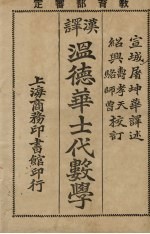 教育部審定
宣城屠坤華譯述
紹興壽孝天 駱師曾校訂
漢譯
溫德華士代數學
上海商務印書館印行